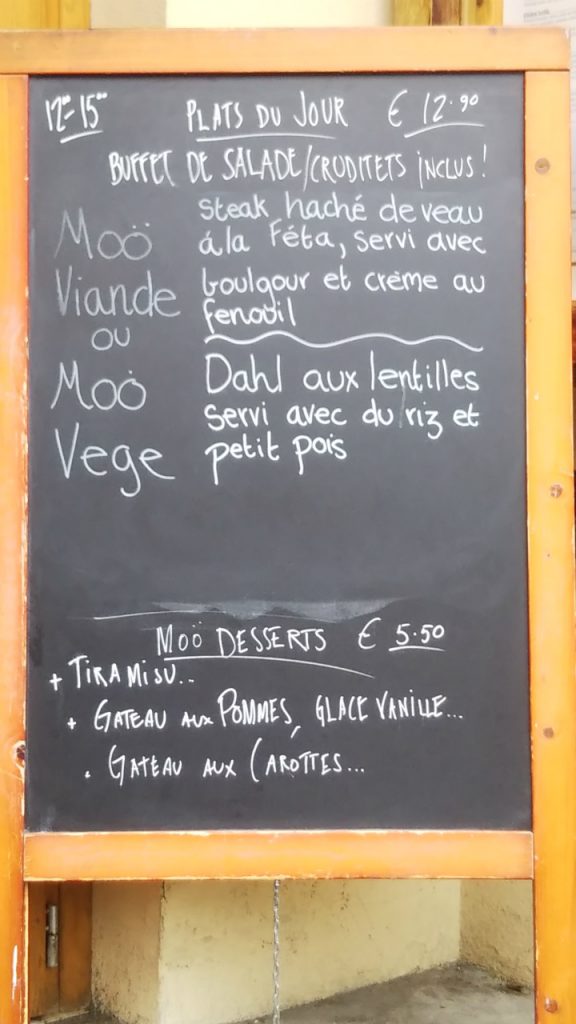 12⁰⁰-15⁰⁰ PLATS DU JOUR € 12.90
BUFFET DE SALADE/CRODITETS INCLUS!
Moö Viande
steak haché de veau
á la Féta, servi avec
boulgour et crème au
fenouil
ou
Moö Vege
Dahl aux lentilles
servi avec du riz et
petit pois
Moö DESSERTS € 5.50
+ TIRAMISU..
+ GATEAU AUX POMMES, GLACE VANILLE...
. GATEAU AUX CAROTTES...